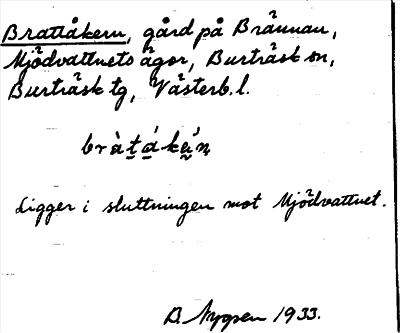 Brattåkern, gård på Brännan,
Mjödvattnets ägor, Burträsk sn,
Burträsk tg, Västerb. l.
bràtákán
Ligger i sluttningen mot Mjödvattnet.
D. Nygren 1933.